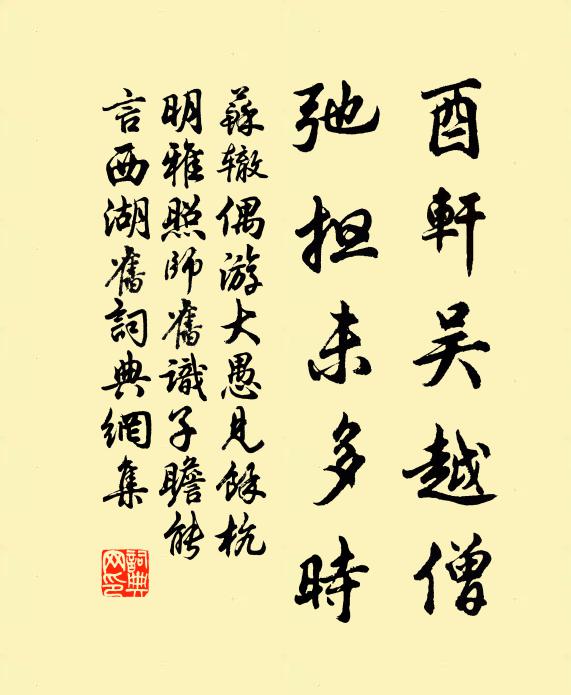 酉軒吴越僧
弛担未多時
蘇轍偶游大愚見餘杭
明雅照師舊識子瞻能
言西湖舊詞典網集
詞典
网印